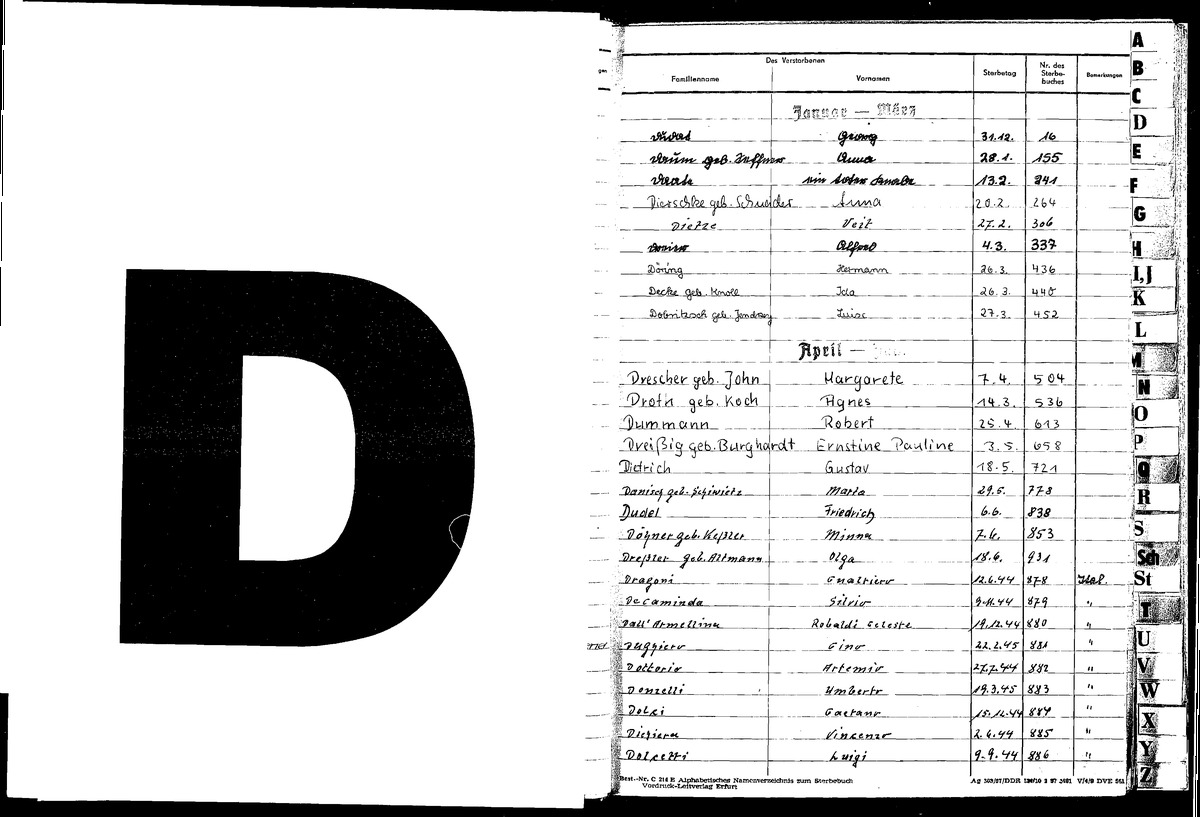 D
Des Verstorbenen
Familienname Vornamen Sterbetag Nr. des Sterbe-buches Bemerkungen
Januar — März
Georg 31.12. 16
Daum geb. Anna 28.1. 155
ein toter Knabe 13.2. 241
Dierschke geb. Schneider Anna 20.2. 264
Dietze Veit 27.2. 306
Alfred 4.3. 337
Döring Hermann 26.3. 436
Decke geb. Knoll Ida 26.3. 440
Dobritzsch geb. Luise 27.3. 452
April —
Drescher geb. John Margarete 7.4. 504
Droth geb. Koch Agnes 14.3. 536
Dummann Robert 25.4. 613
Dreißig geb. Burghardt Ernstine Pauline 3.5. 658
Dietrich Gustav 18.5. 721
Danisch geb. Maria 29.5. 778
Dudel Friedrich 6.6. 838
geb. Keßler Minna 7.6. 853
Dreßler geb. Altmann Olga 18.6. 931
Dragoni Gualtiero 12.6.44 878 Ital.
De Caminda Silvio 9.11.44 879 "
Dall'Armellina Robaldi Celeste 19.12.44 880 "
Gino 22.2.45 881 "
Dottorio Artemio 27.7.44 882 "
Donzelli Umberto 19.3.45 883 "
Dolci Gaetano 15.12.44 884 "
Vincenzo 2.6.44 885 "
Dolcetti Luigi 9.9.44 886 "
Best.-Nr. C 214 E Alphabetisches Namenverzeichnis zum Sterbebuch
Vordruck-Leitverlag Erfurt
A
B
C
D
E
F
G
H
I,J
K
L
M
N
O
P
Q
R
S
Sch
St
T
U
V
W
X
Y
Z